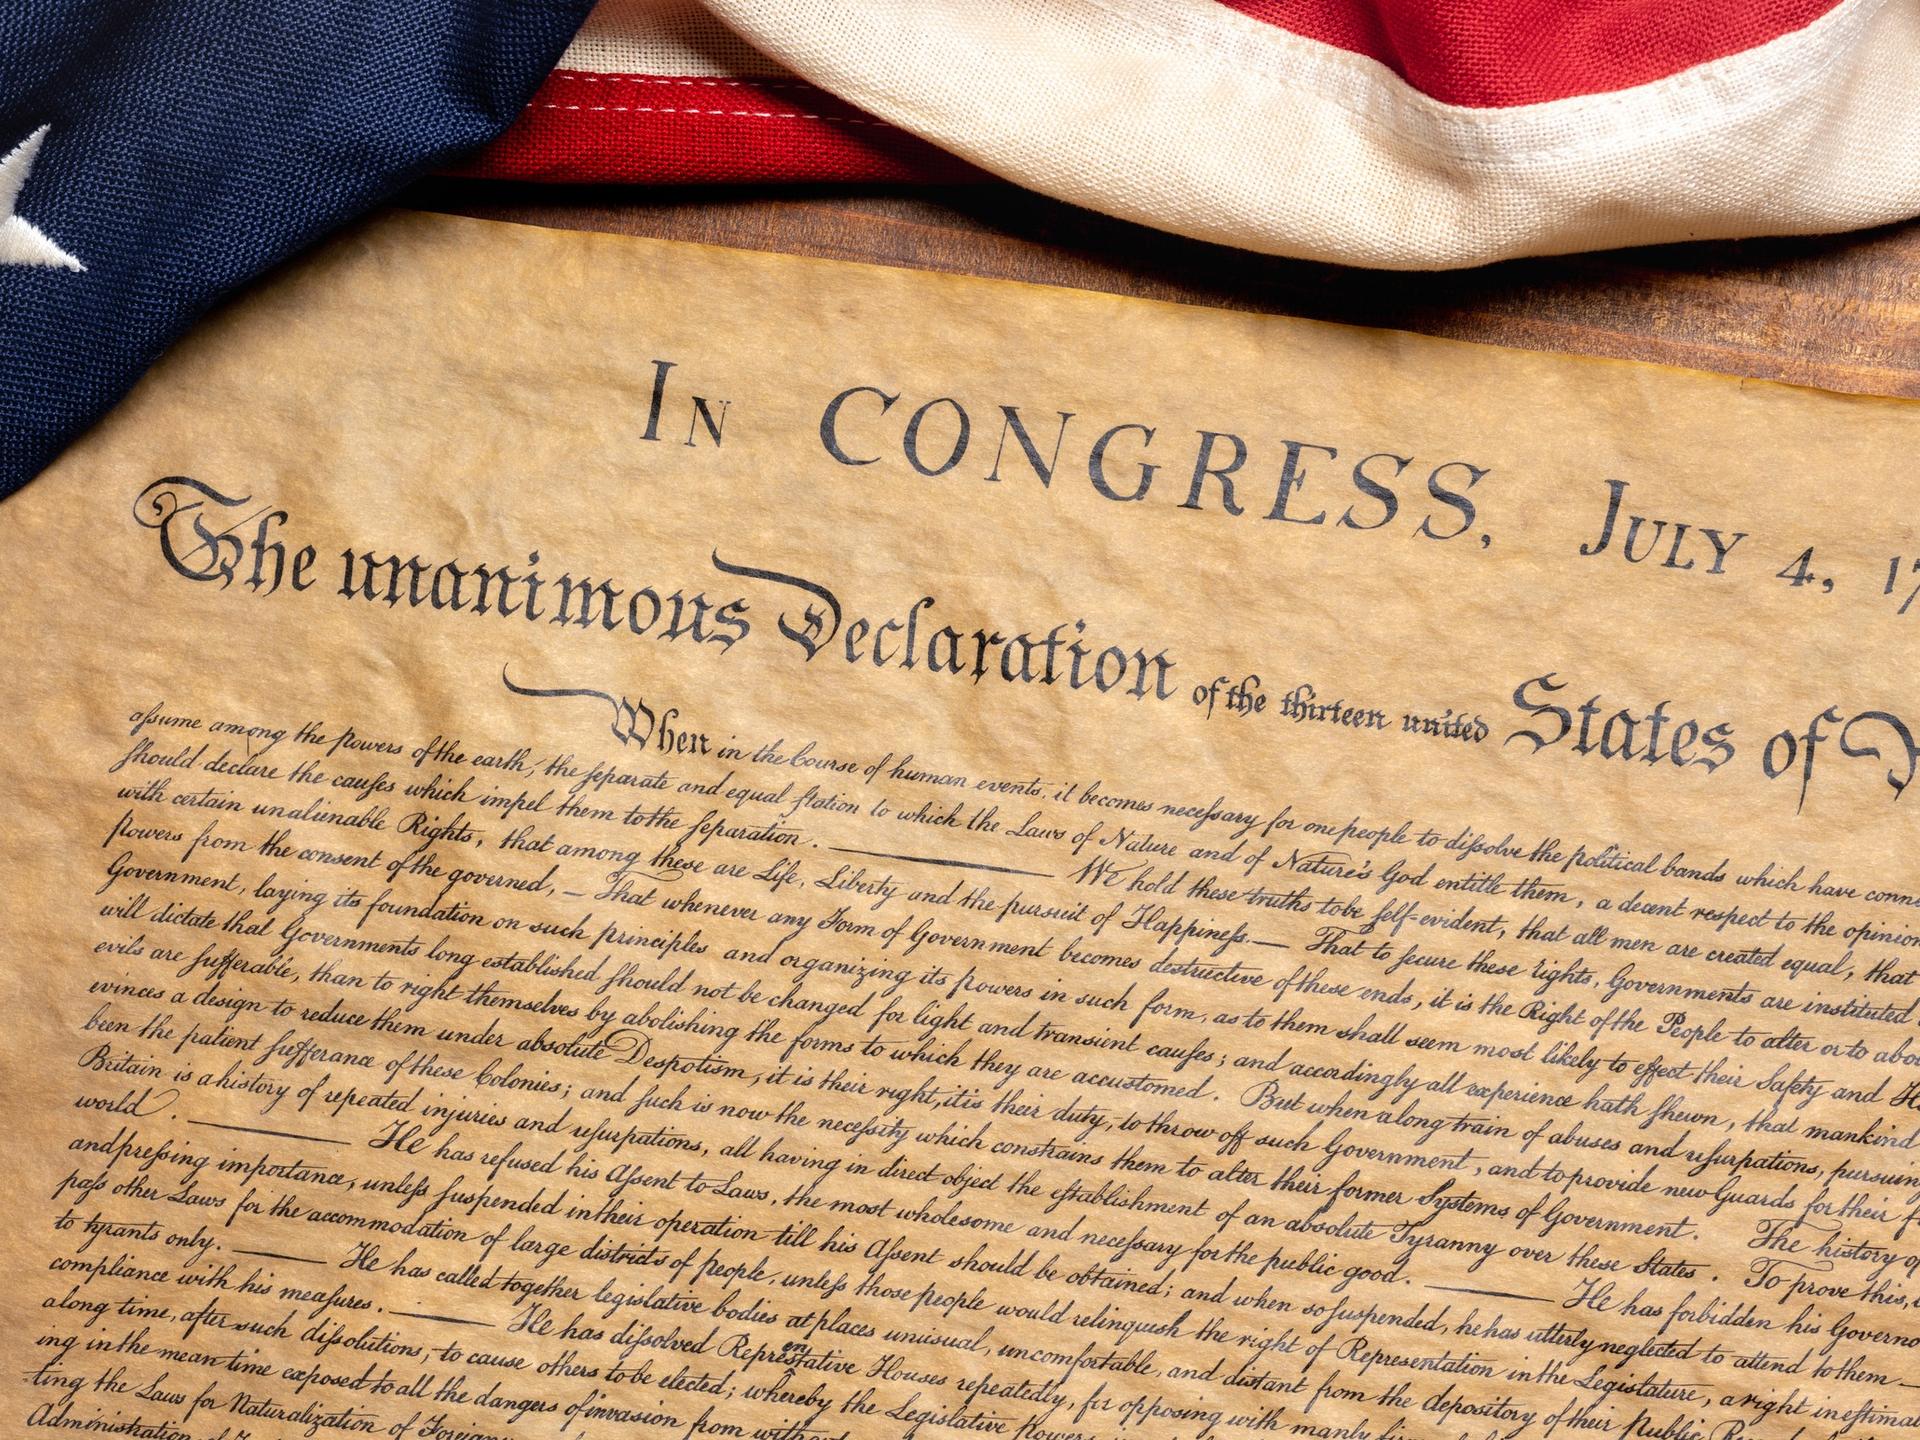 In CONGRESS, July 4, 17
The unanimous Declaration of the thirteen united States of
When in the Course of human events, it becomes necessary for one people to dissolve the political bands which have conne
assume among the powers of the earth, the separate and equal station to which the Laws of Nature and of Nature's God entitle them, a decent respect to the opinion
should declare the causes which impel them to the separation. — We hold these truths to be self-evident, that all men are created equal, that
with certain unalienable Rights, that among these are Life, Liberty and the pursuit of Happiness.— That to secure these rights, Governments are instituted
powers from the consent of the governed, — That whenever any Form of Government becomes destructive of these ends, it is the Right of the People to alter or to abo
Government, laying its foundation on such principles and organizing its powers in such form, as to them shall seem most likely to effect their Safety and H
will dictate that Governments long established should not be changed for light and transient causes; and accordingly all experience hath shewn, that mankind
evils are sufferable, than to right themselves by abolishing the forms to which they are accustomed. But when a long train of abuses and usurpations, pursuin
evinces a design to reduce them under absolute Despotism, it is their right, it is their duty, to throw off such Government, and to provide new Guards for their f
been the patient sufferance of these Colonies; and such is now the necessity which constrains them to alter their former Systems of Government. The history of
Britain is a history of repeated injuries and usurpations, all having in direct object the establishment of an absolute Tyranny over these States. To prove this,
world. — He has refused his Assent to Laws, the most wholesome and necessary for the public good. — He has forbidden his Governo
and pressing importance, unless suspended in their operation till his Assent should be obtained; and when so suspended, he has utterly neglected to attend to them —
pass other Laws for the accommodation of large districts of people, unless those people would relinquish the right of Representation in the Legislature, a right inestimab
to tyrants only. — He has called together legislative bodies at places unusual, uncomfortable, and distant from the depository of their Public
compliance with his measures. — He has dissolved Representative Houses repeatedly, for opposing with manly
along time, after such dissolutions, to cause others to be elected; whereby the Legislative Powers
ing in the mean time exposed to all the dangers of invasion from without
ting the Laws for Naturalization of
Administration of